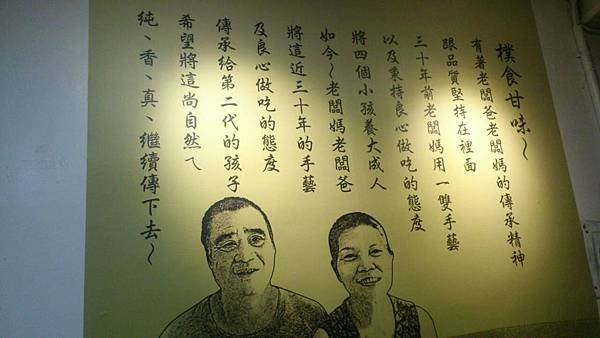 樸食甘味~
有著老闆爸老闆媽的傳承精神
跟品質堅持在裡面
三十年前老闆媽用一雙手藝
以及秉持良心做吃的態度
將四個小孩養大成人
如今~老闆媽老闆爸
將這近三十年的手藝
及良心做吃的態度
傳承給第二代的孩子
希望將這尚自然ㄟ
純、香、真、繼續傳下去~